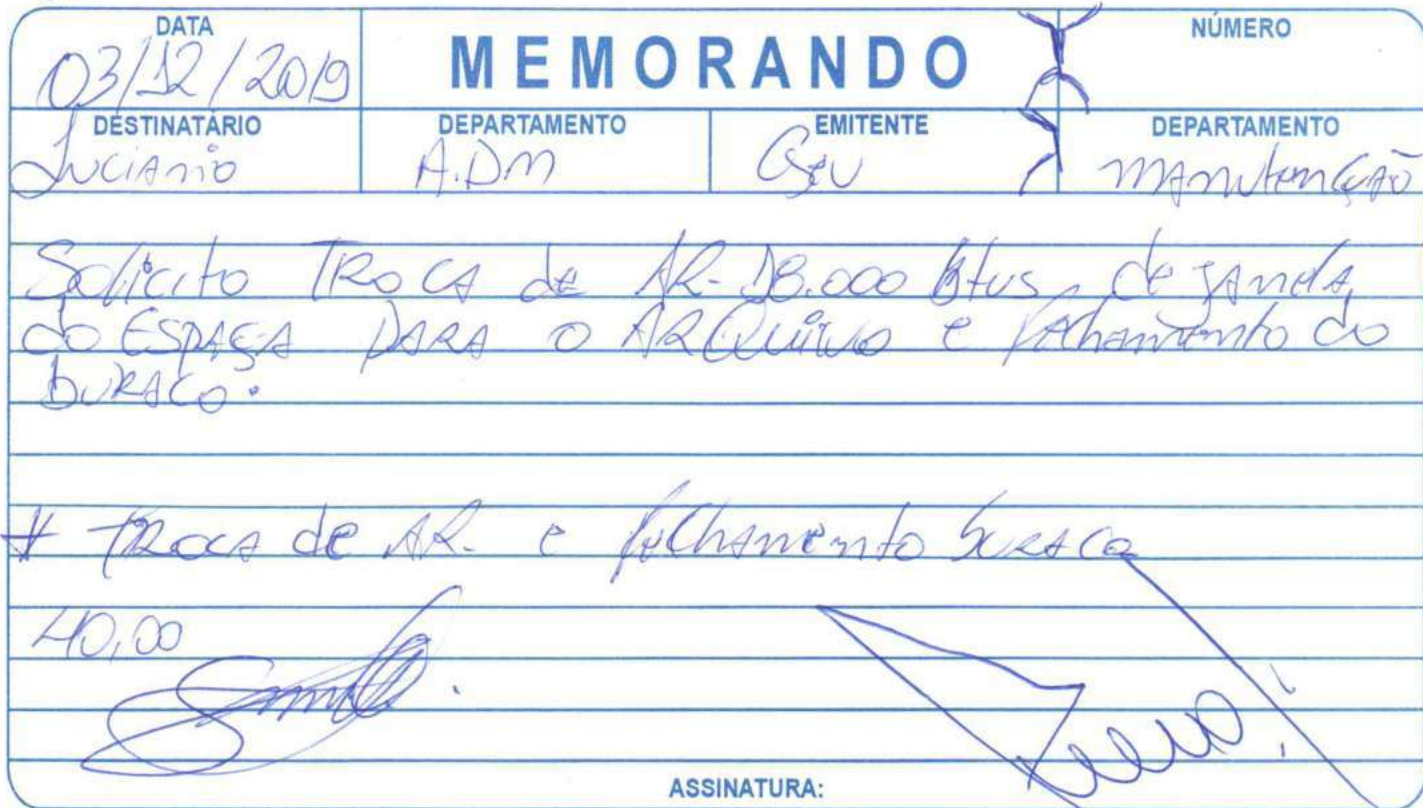 DATA MEMORANDO NÚMERO
03/12/2019
DESTINATÁRIO DEPARTAMENTO EMITENTE DEPARTAMENTO
Luciano A.DM manutenção
Solicito TROCA de AR-18.000 Btus de janela,
do ESPAÇA PARA O ARQUIVO e fechamento do
buraco.
# TROCA de AR. e fechamento buraco
40,00
ASSINATURA: